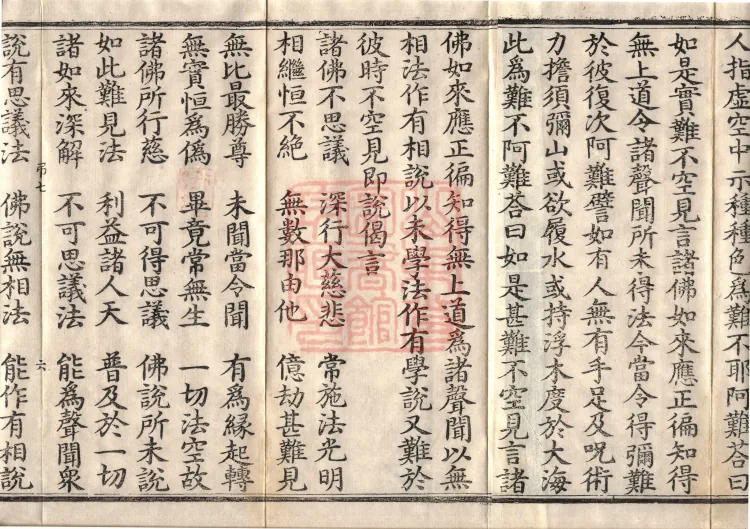 人指虚空中示種種色爲難不耶阿難荅曰
如是實難不空見言諸佛如來應正徧知得
無上道令諸聲聞所未得法令當令得彌難
於彼復次阿難譬如有人無有手足及呪術
力擔須彌山或欲履水或持浮木度於大海
此爲難不阿難荅曰如是甚難不空見言諸
佛如來應正徧知得無上道爲諸聲聞以無
相法作有相說以未學法作有學說又難於
彼時不空見即說偈言
諸佛不思議　深行大慈悲　常施法光明
相繼恒不絕　無數那由他　億劫甚難見
無比最勝尊　未聞當令聞　有爲緣起轉
無實恒爲僞　畢竟常無生　一切法空故
諸佛所行慈　不可得思議　佛說所未說
如此難見法　利益諸人天　普及於一切
諸如來深解　不可思議法　能爲聲聞衆
弔七　六
說有思議法　佛說無相法　能作有相說